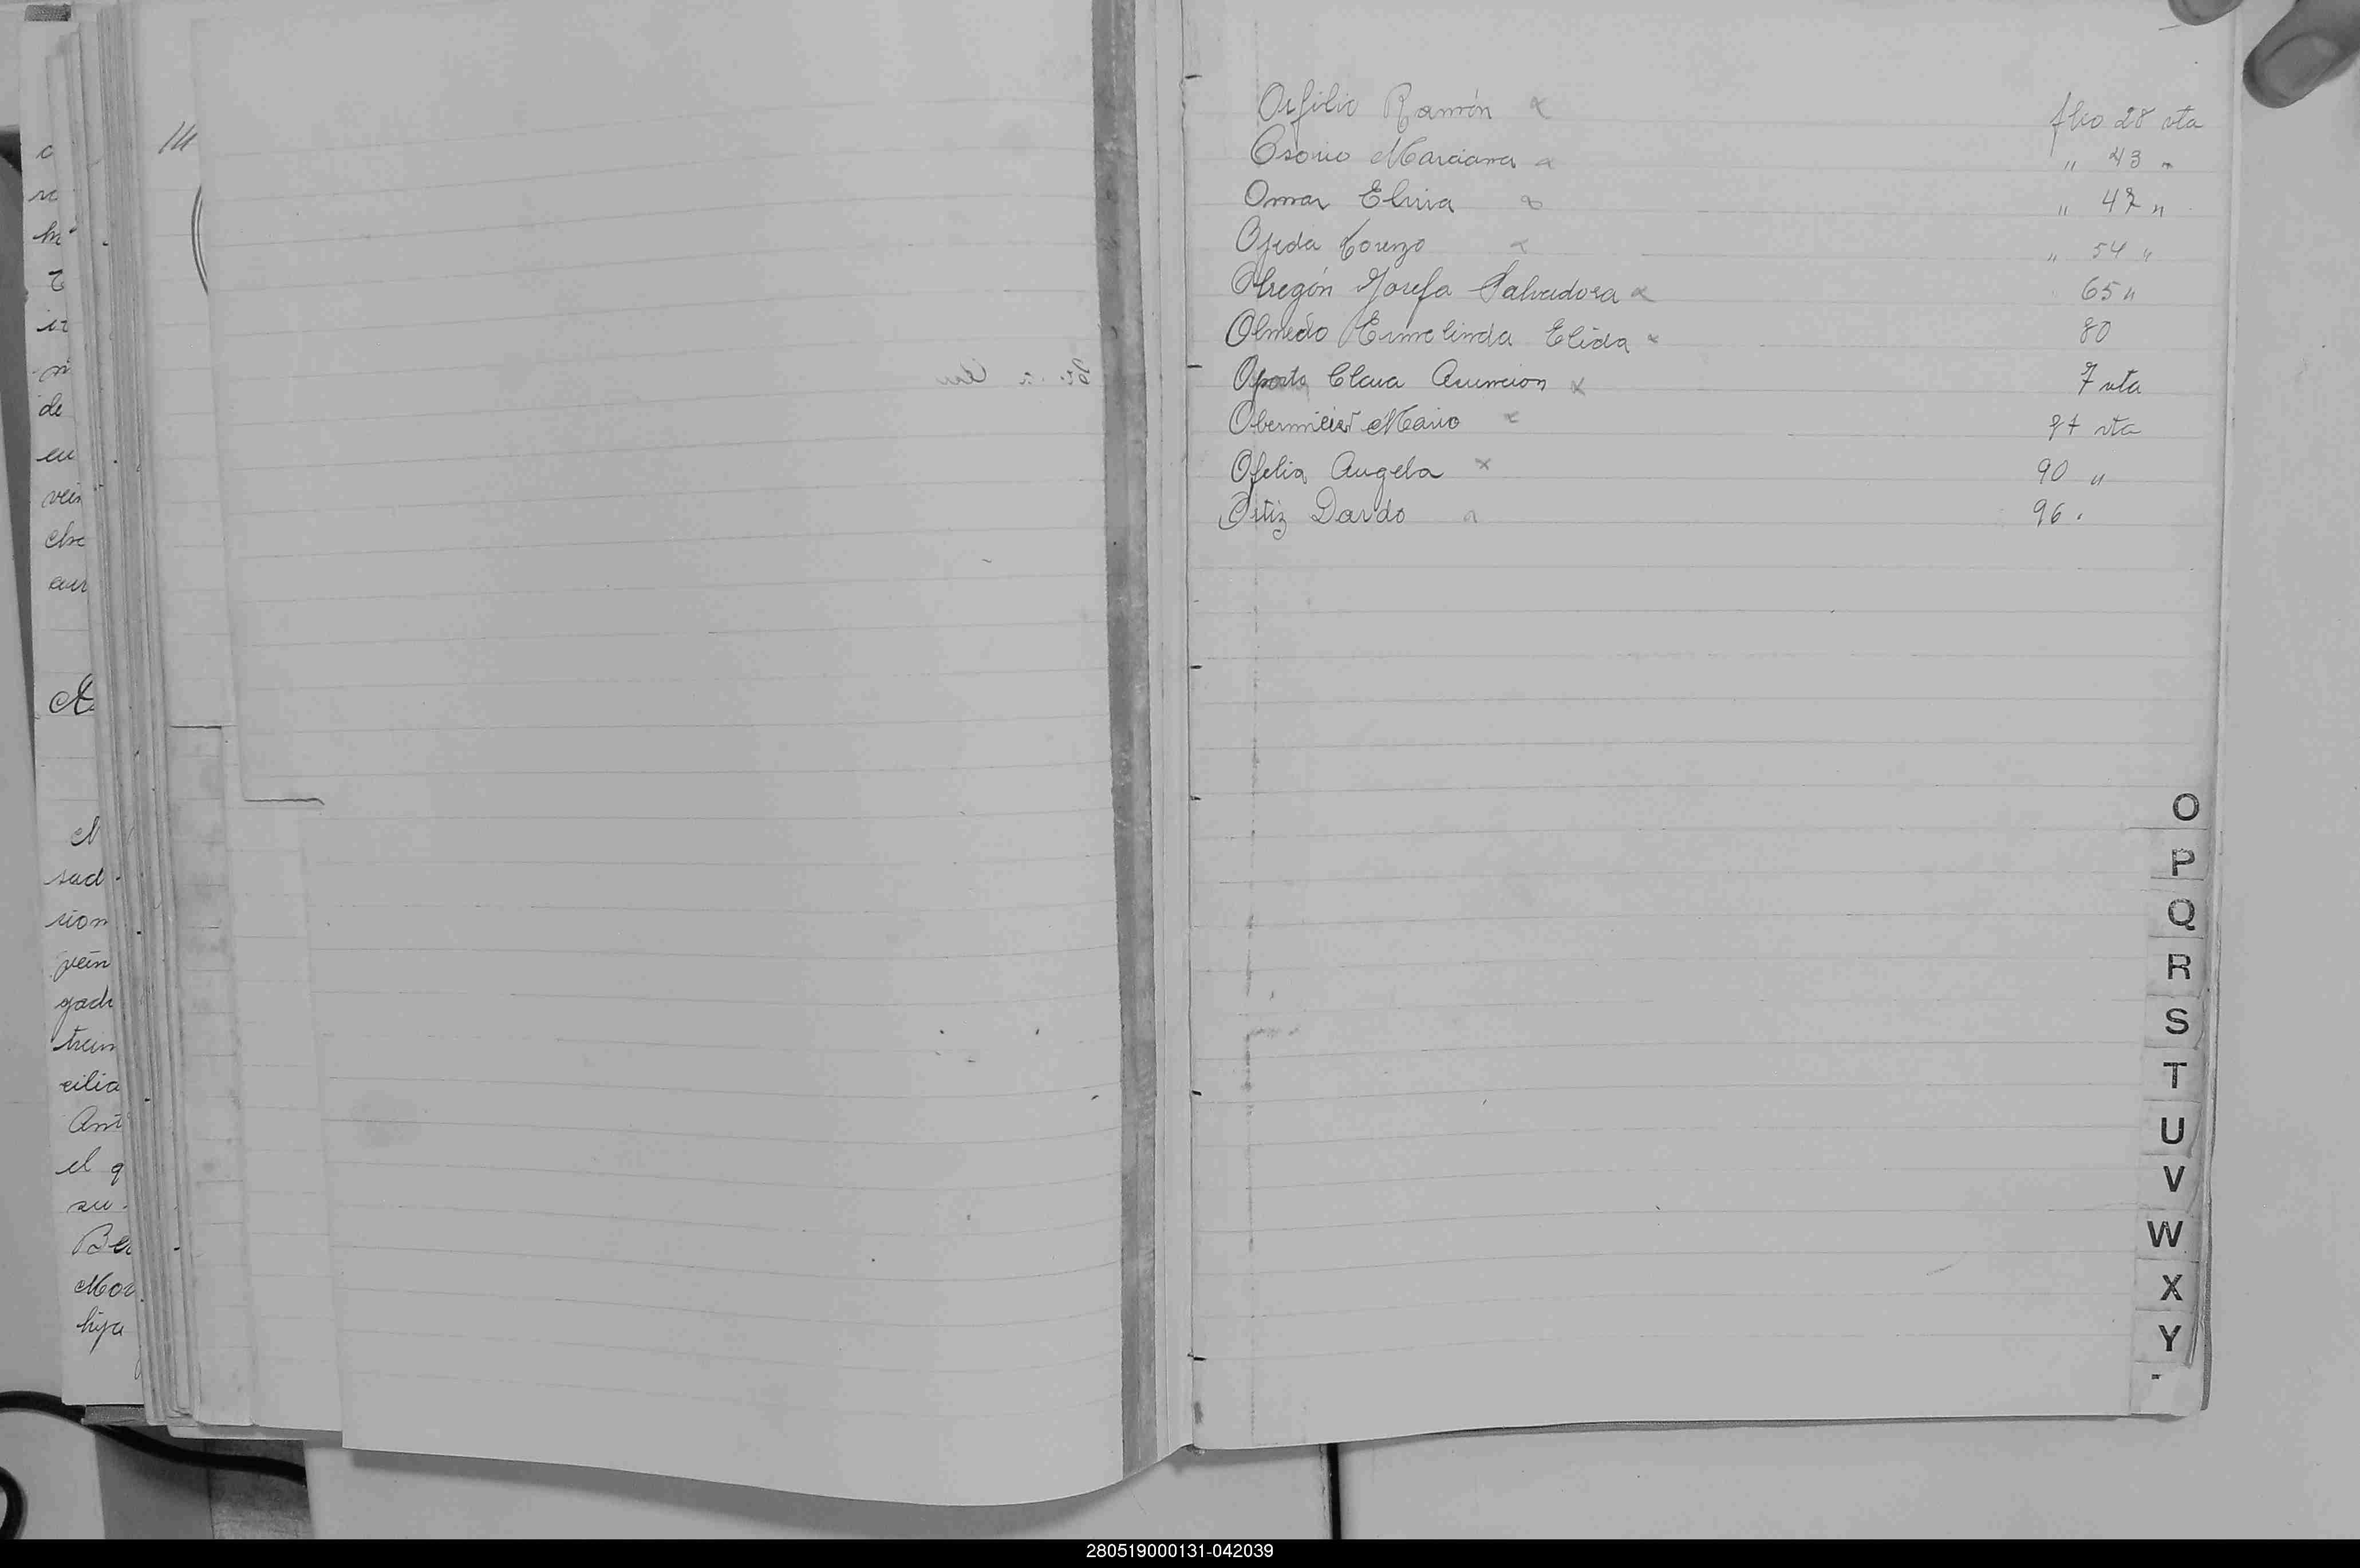 Orfilio Ramón x flio 28 vta
Osorio Marciana x " 43 "
Omar Elvira x " 47 "
Ojeda Lorenzo x " 54 "
Obregón Josefa Salvadora x 65 "
Olmedo Ermelinda Elida x 80
Oporto Clara Asuncion x 7 vta
Obermeier Mario x 87 vta
Ofelia Angela x 90 "
Ortiz Dardo x 96.
O
P
Q
R
S
T
U
V
W
X
Y
de
su
vein
sad
sion
gad
cilia
el q
su
Mor
hija
280519000131-042039